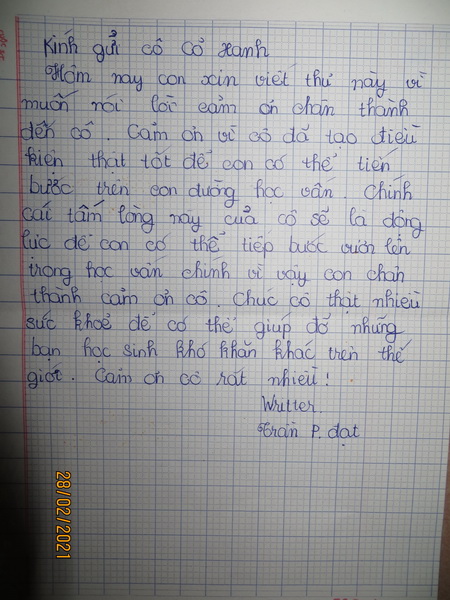 Kính gửi cô Cỏ Xanh
Hôm nay con xin viết thư này vì
muốn nói lời cảm ơn chân thành
đến cô. Cảm ơn vì cô đã tạo điều
kiện thật tốt để con có thể tiến
bước trên con đường học vấn. Chính
cái tấm lòng này của cô sẽ là động
lực để con có thể tiếp bước vươn lên
trong học vấn chính vì vậy con chân
thành cảm ơn cô. Chúc cô thật nhiều
sức khoẻ để có thể giúp đỡ những
bạn học sinh khó khăn khác trên thế
giới. Cảm ơn cô rất nhiều!
Writter.
Trần P. đạt
28/02/2021